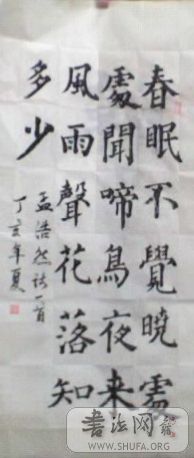 春眠不覺曉處
處聞啼鳥夜来
風雨聲花落知
多少
孟浩然诗一首
丁亥年夏
书法网
WWW.SHUFA.ORG